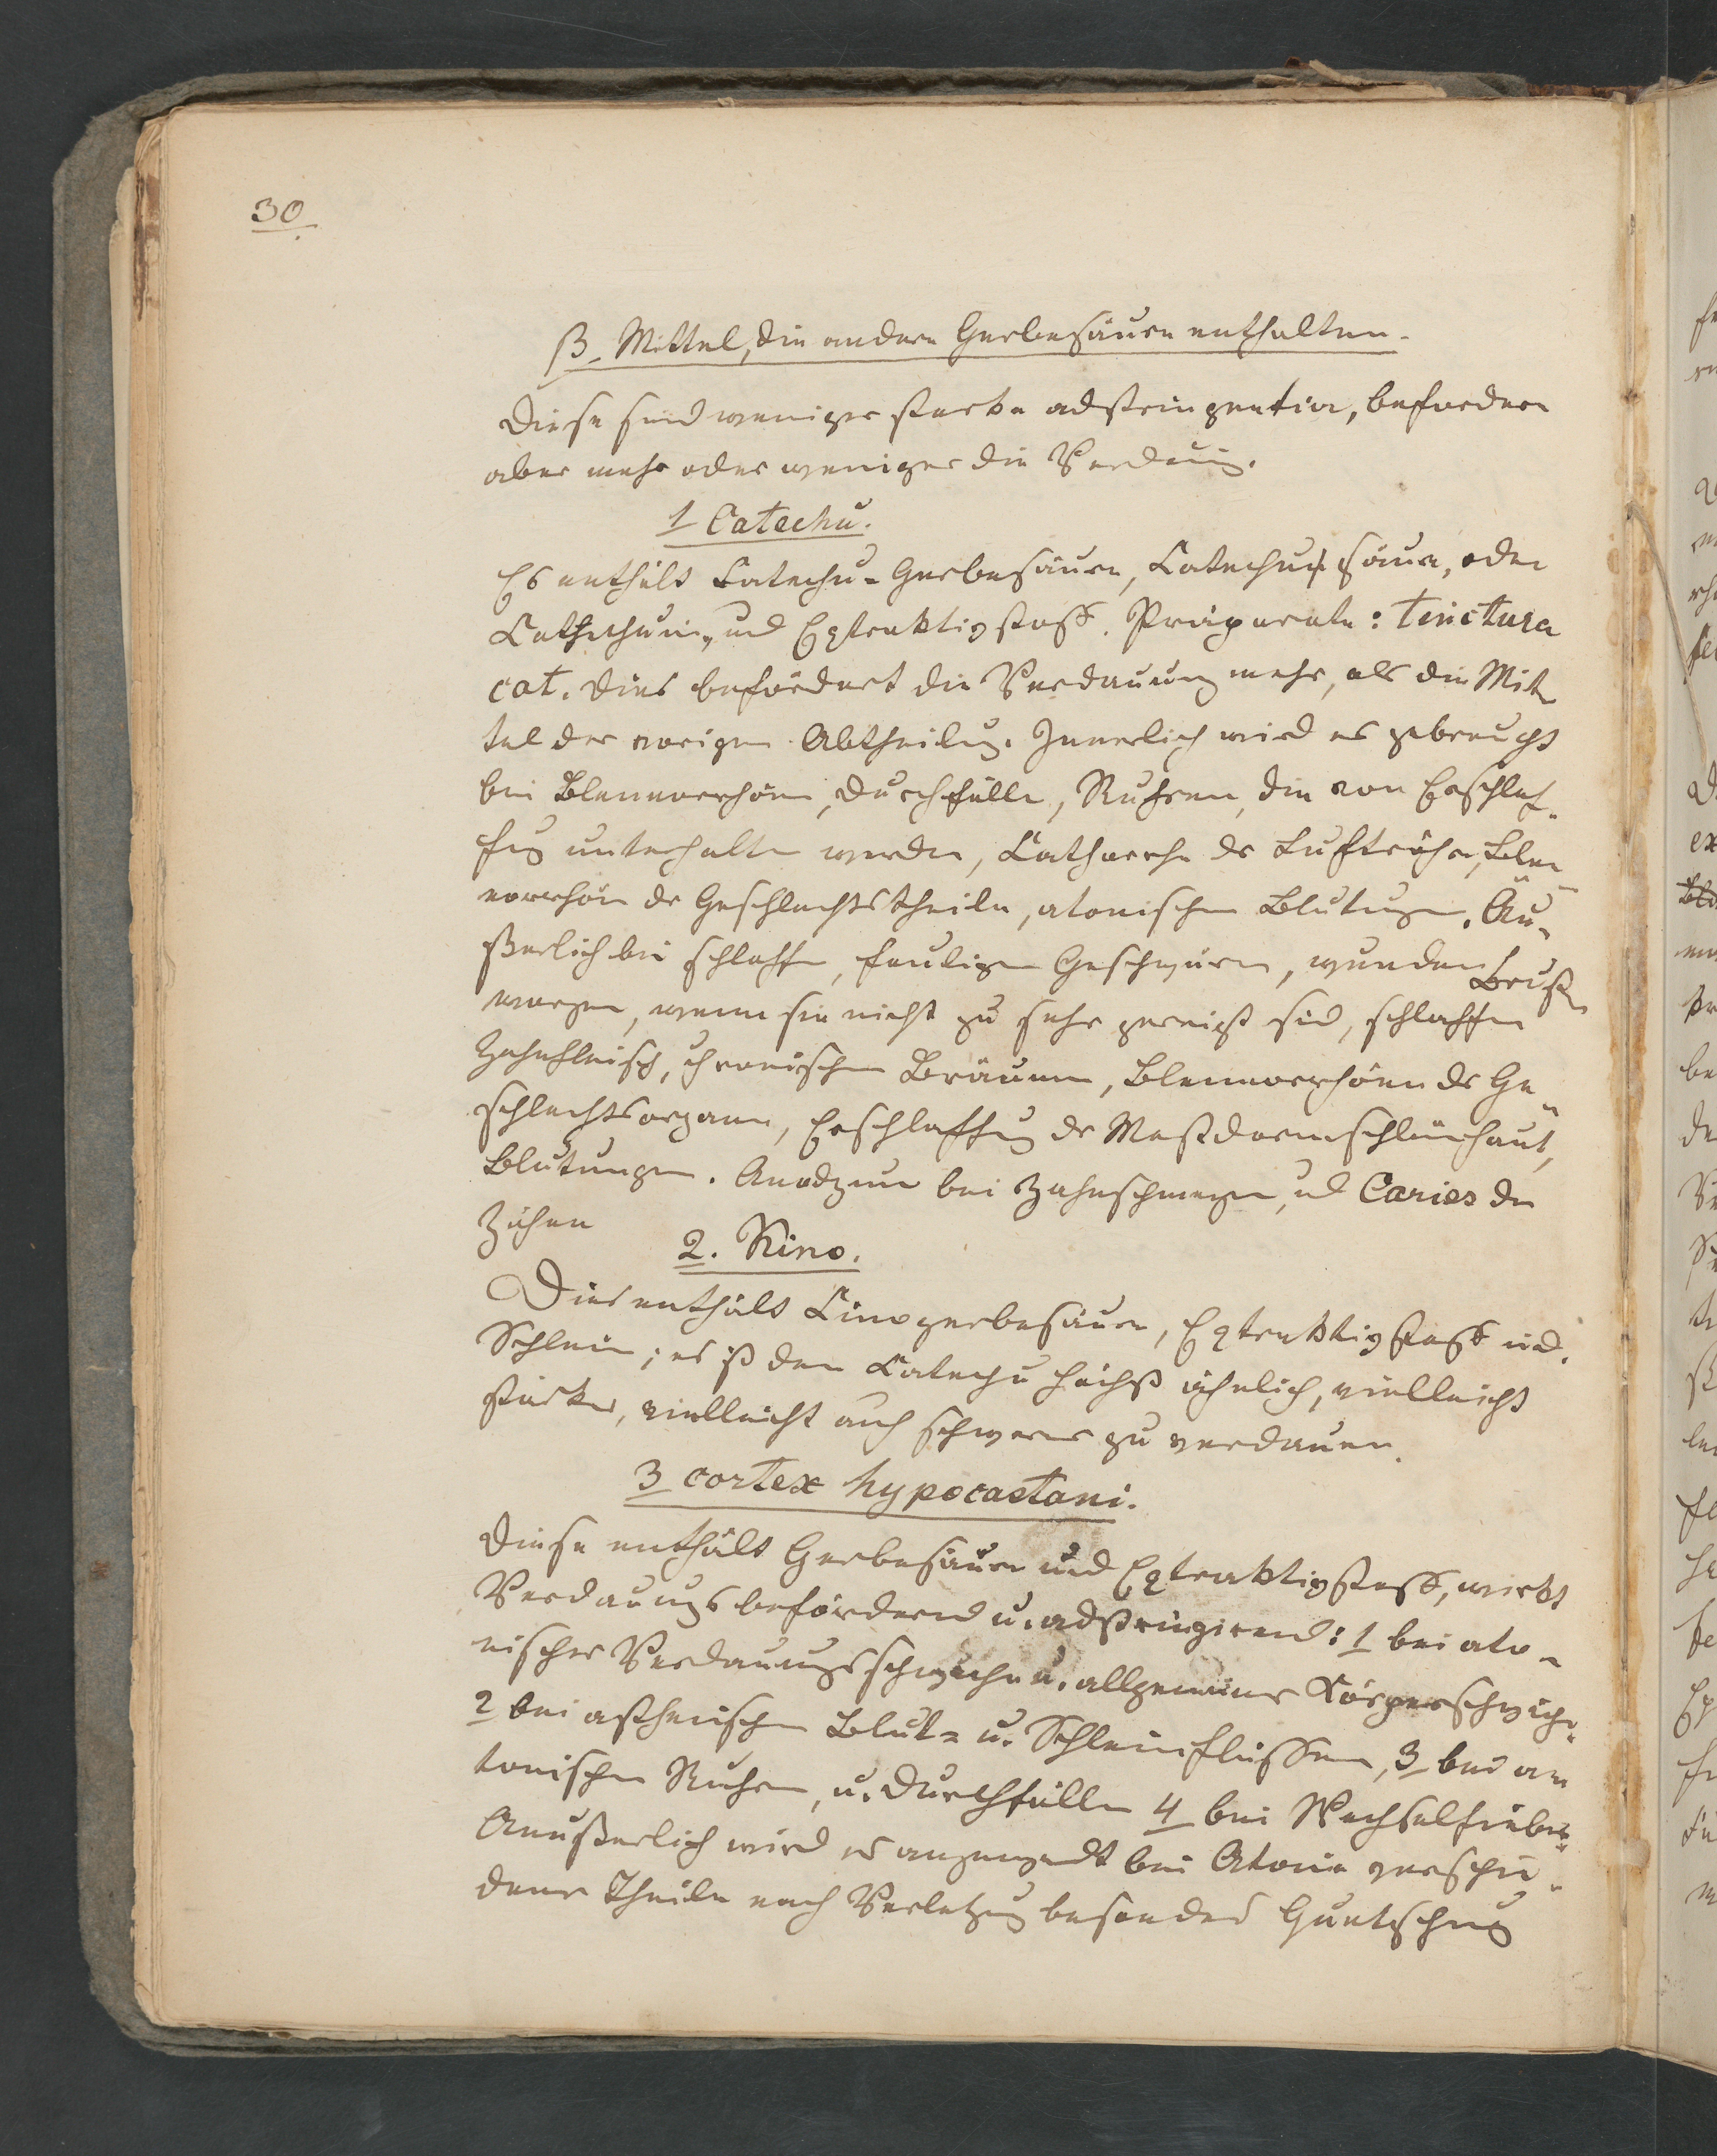 30.
β. Mittel, die andere Gerbesäuren enthalten.
Diese sind weniger starke adstringentia, befordern
aber mehr oder weniger die Verdaung.
1 Catechu.
Es enthält Catechu-Gerbesäure, Catechusäure, oder
und Extraktivstoff. Präparate: Tinctura
cat. Dies befördert die Verdauung mehr, als die Mit-
tel der vorigen Abtheilung. Innerlich wird es gebraucht
bei Blennorrhöen, Durchfälle, Ruhren, die von Erschlaf-
fung unterhalten werden, Catharrhe der Luftröhre, Blen-
norrhöe der Geschlechtstheile, atonischen Blutungen. Äu-
ßerlich bei schlaffen, fauligen Geschwüren, wunden Brust-
warzen, wenn sie nicht zu sehr gereizt sind, schlaffen
Zahnfleisch, chronischen Bräunen, Blennorrhöen der Ge-
schlechtsorgane, Erschlaffung der Mastdarmschleimhaut,
Blutungen. bei Zahnschmerzen, und Caries der
Zähne
2. Kino.
Dies enthält Cinogerbesäure, Extraktivstoff und
Schleim; es ist dem Catechu höchst ähnlich, vielleicht
stärker, vielleicht auch schwerer zu verdauen.
3 cortex hypocastani.
Diese enthält Gerbesäure und Extraktivstoff, wirkt
Verdauungsbefördernd u. adstringirend: 1 bei ato-
nischer Verdauungsschwäche u. allgemeiner Körperschwäche.
2 bei asthenischen Blut- u. Schleimflüssen, 3 bei a-
tonischen Ruhren, u. Durchfällen 4 bei Wechselfieber.
Aeußerlich wird es angewendt bei Atonie verschie-
dener Theile nach Verletzung besonders Quetschung